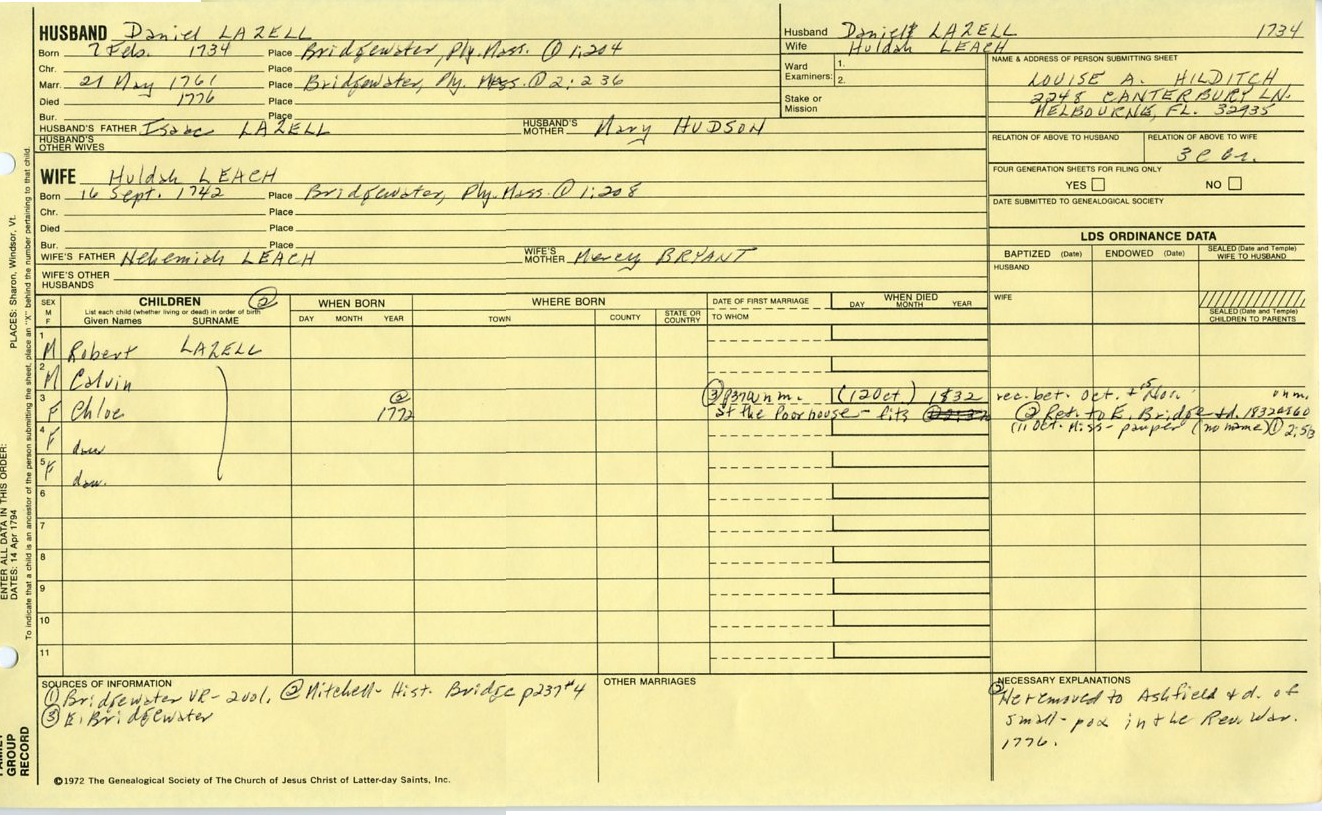 HUSBAND Daniel LAZELL
Born 7 Feb. 1734 Place Bridgewater, Ply. Mass. ① 1:204
Chr. Place
Marr. 21 May 1761 Place Bridgewater, Ply. Mass. ① 2:236
Died 1776 Place
Bur. Place
HUSBAND'S FATHER Isaac LAZELL HUSBAND'S MOTHER Mary HUDSON
HUSBAND'S OTHER WIVES
WIFE Huldah LEACH
Born 16 Sept. 1742 Place Bridgewater, Ply. Mass. ① 1:208
Chr. Place
Died Place
Bur. Place
WIFE'S FATHER Nehemiah LEACH WIFE'S MOTHER Mercy BRYANT
WIFE'S OTHER HUSBANDS
Husband Daniel LAZELL 1734
Wife Huldah LEACH
Ward Examiners: 1. 2.
Stake or Mission
NAME & ADDRESS OF PERSON SUBMITTING SHEET
LOUISE A. HILDITCH
2248 CANTERBURY LN.
MELBOURNE, FL. 32935
RELATION OF ABOVE TO HUSBAND RELATION OF ABOVE TO WIFE
3 c 6r.
FOUR GENERATION SHEETS FOR FILING ONLY
YES NO
DATE SUBMITTED TO GENEALOGICAL SOCIETY
LDS ORDINANCE DATA
BAPTIZED (Date) ENDOWED (Date) SEALED (Date and Temple) WIFE TO HUSBAND
HUSBAND
WIFE
SEALED (Date and Temple) CHILDREN TO PARENTS
SEX M F CHILDREN ② WHEN BORN WHERE BORN DATE OF FIRST MARRIAGE WHEN DIED
List each child (whether living or dead) in order of birth
Given Names SURNAME DAY MONTH YEAR TOWN COUNTY STATE OR COUNTRY TO WHOM DAY MONTH YEAR
1 M Robert LAZELL
2 M Calvin
3 F Chloe ② 1772 ③ p370 unm. (12 Oct.) 1832 rec. bet. Oct. + 5 Nov. unm.
at the Poorhouse - fits ② Ret. to E. Bridge + d. 1832
4 F dau (11 Oct. Miss - pauper (no name) ① 2:513
5 F dau.
6
7
8
9
10
11
SOURCES OF INFORMATION
① Bridgewater VR - 2 vol. ② Mitchell - Hist. Bridge p237 #4
③ E. Bridgewater
OTHER MARRIAGES
NECESSARY EXPLANATIONS
② He removed to Ashfield + d. of
small-pox in the Rev. War.
1776.
©1972 The Genealogical Society of The Church of Jesus Christ of Latter-day Saints, Inc.
FAMILY GROUP RECORD
ENTER ALL DATA IN THIS ORDER:
DATES: 14 Apr 1794
PLACES: Sharon, Windsor, Vt.
To indicate that a child is an ancestor of the person submitting the sheet, place an "X" behind the number pertaining to that child.